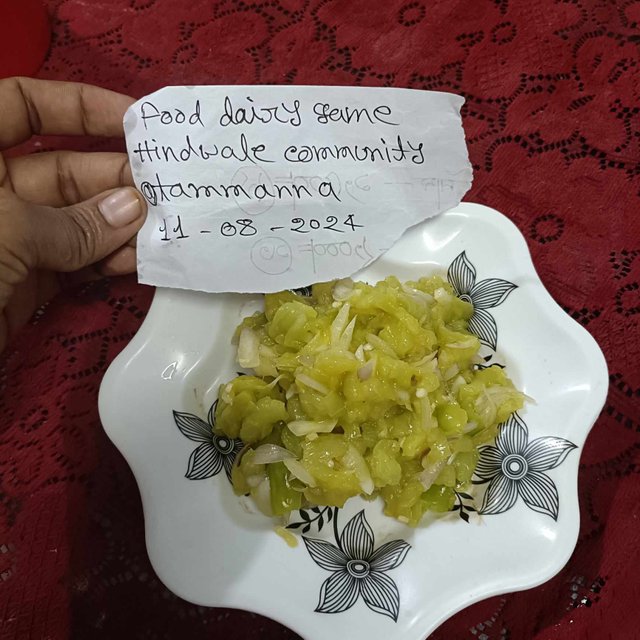 Food dairy game
Hindwale community
@tammanna
11-08-2024